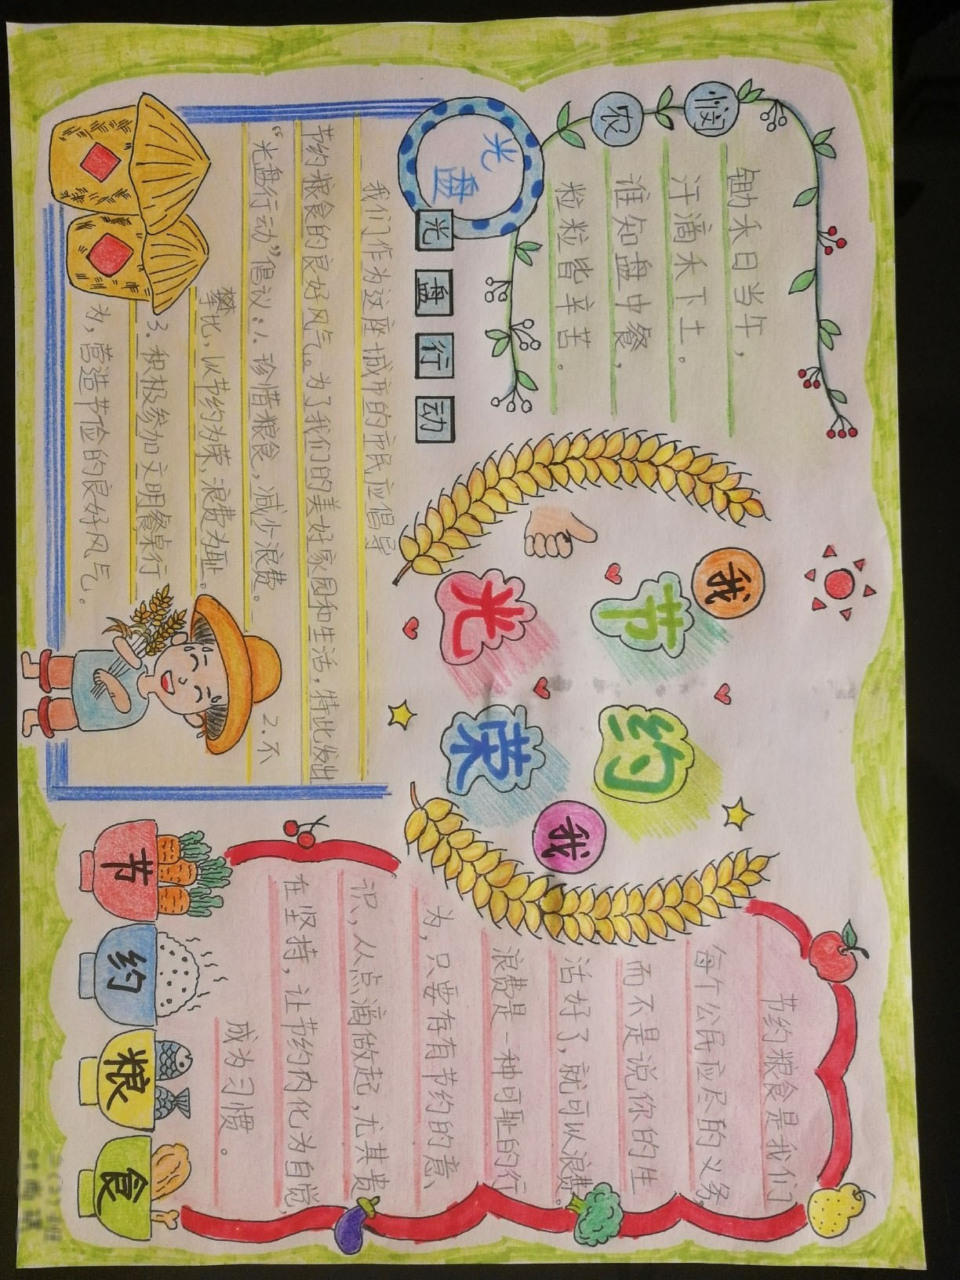 悯农
锄禾日当午，
汗滴禾下土。
谁知盘中餐，
粒粒皆辛苦。
我节约
我光荣
光盘
光盘行动
我们作为这座城市的市民应倡导
节约粮食的良好风气。为了我们的美好家园和生活，特此发出
“光盘行动”倡议：1.珍惜粮食，减少浪费。2.不
攀比，以节约为荣，浪费为耻。
3.积极参加文明餐桌行
为，营造节俭的良好风气。
节约粮食是我们
每个公民应尽的义务，
而不是说你的生
活好了，就可以浪费。
浪费是一种可耻的行
为，只要存有节约的意
识，从点滴做起，尤其贵
在坚持，让节约内化为自觉，
成为习惯。
节约粮食